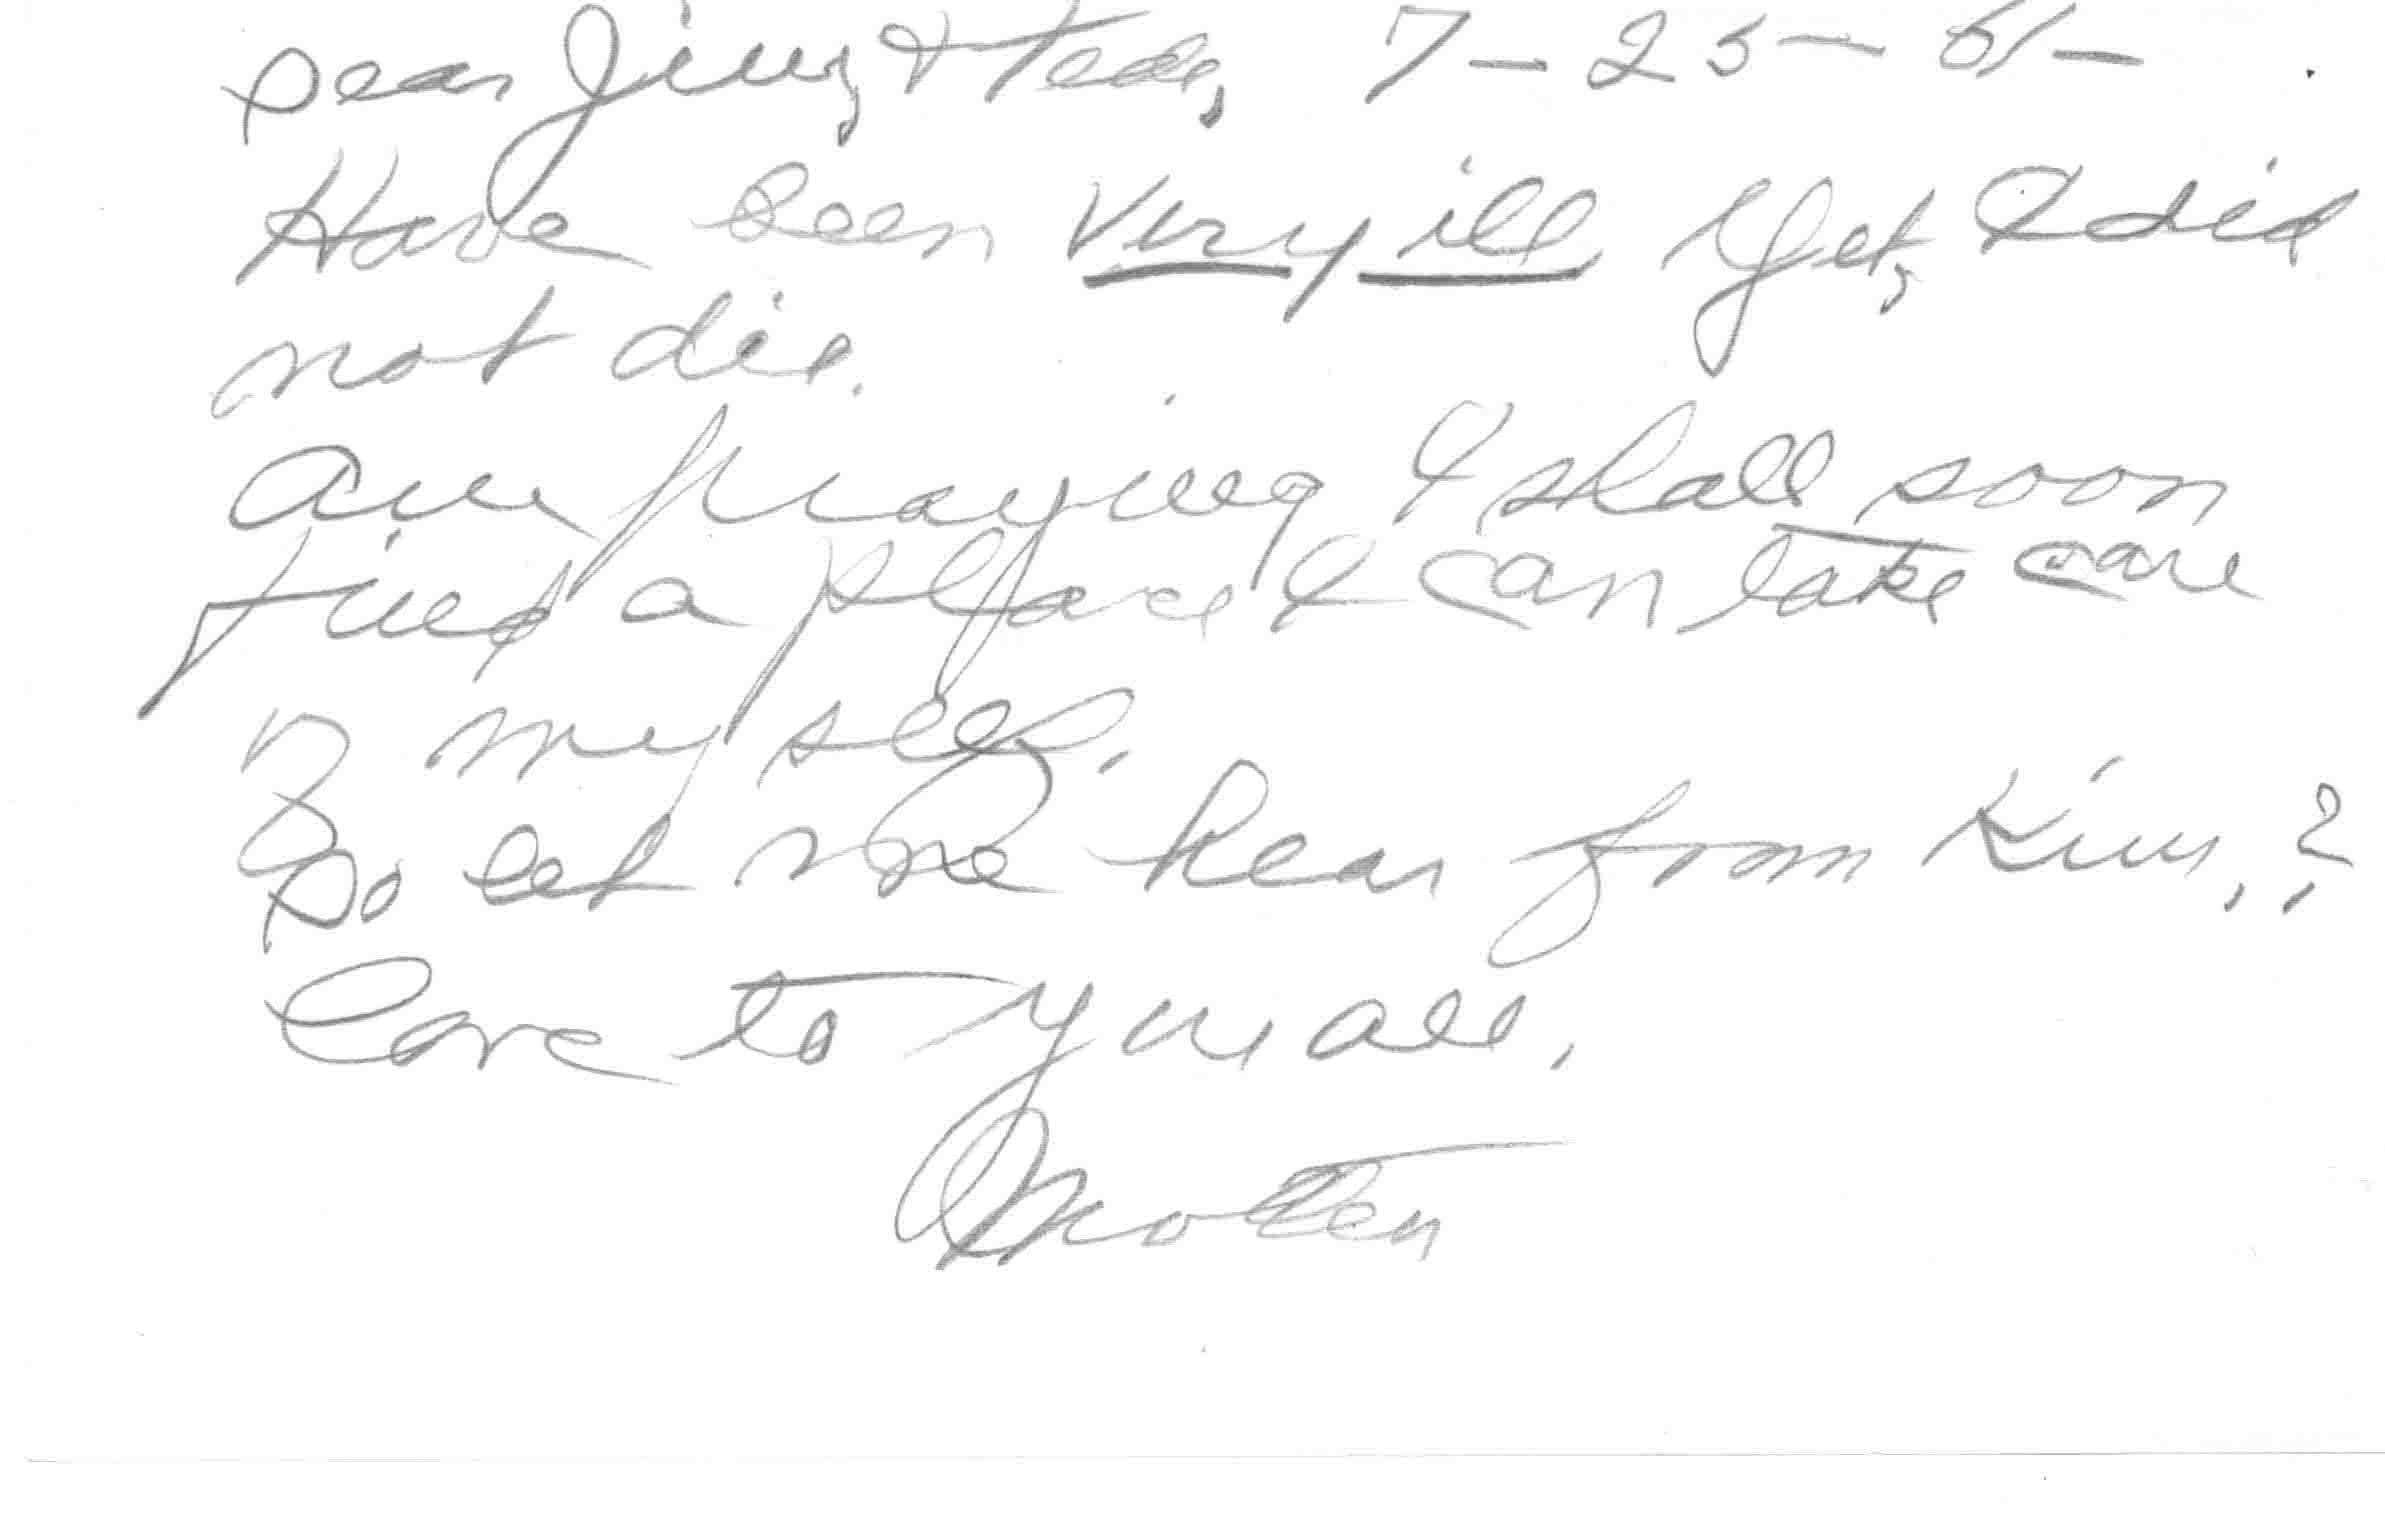 Dear Jim, & Teda, 7-25-61-
Have been very ill Yet, I did
not die.
Am praying I shall soon
find a place I can take care
of my self.
Do let me hear from Kim,?
Love to you all.
Mother